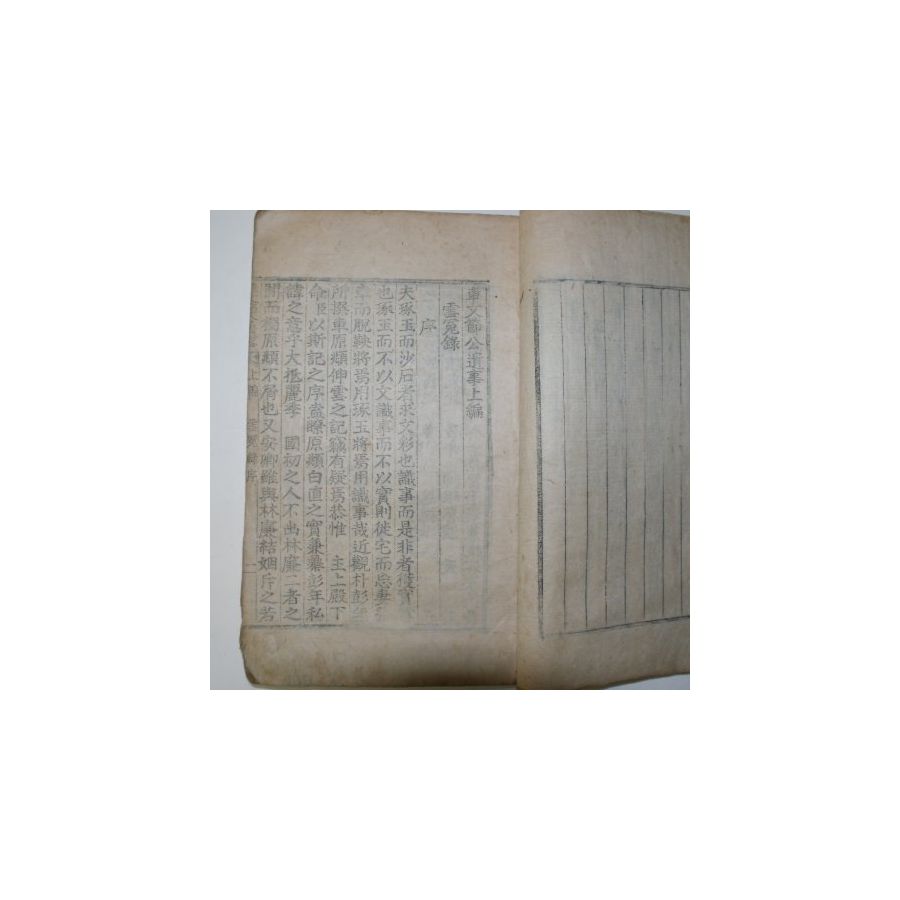 車文節公遺事上編
雪冤錄
序
夫琢玉而沙石者求文彩也識事而是非者獲實
也琢玉而不以文識事而不以實則徙宅而忘妻
而脫鞅將焉用琢玉將焉用識事哉近觀朴彭年
所撰車原頫伸雪之記竊有疑焉恭惟 主上殿下
命臣以斯記之序盖瞭原頫白直之實兼纂彭年私
諱之意乎大抵麗季 國初之人不出林廉二者之
間而獨原頫不屑也又安卿雖與林廉結姻斥之若
上編 雪冤錄序 一